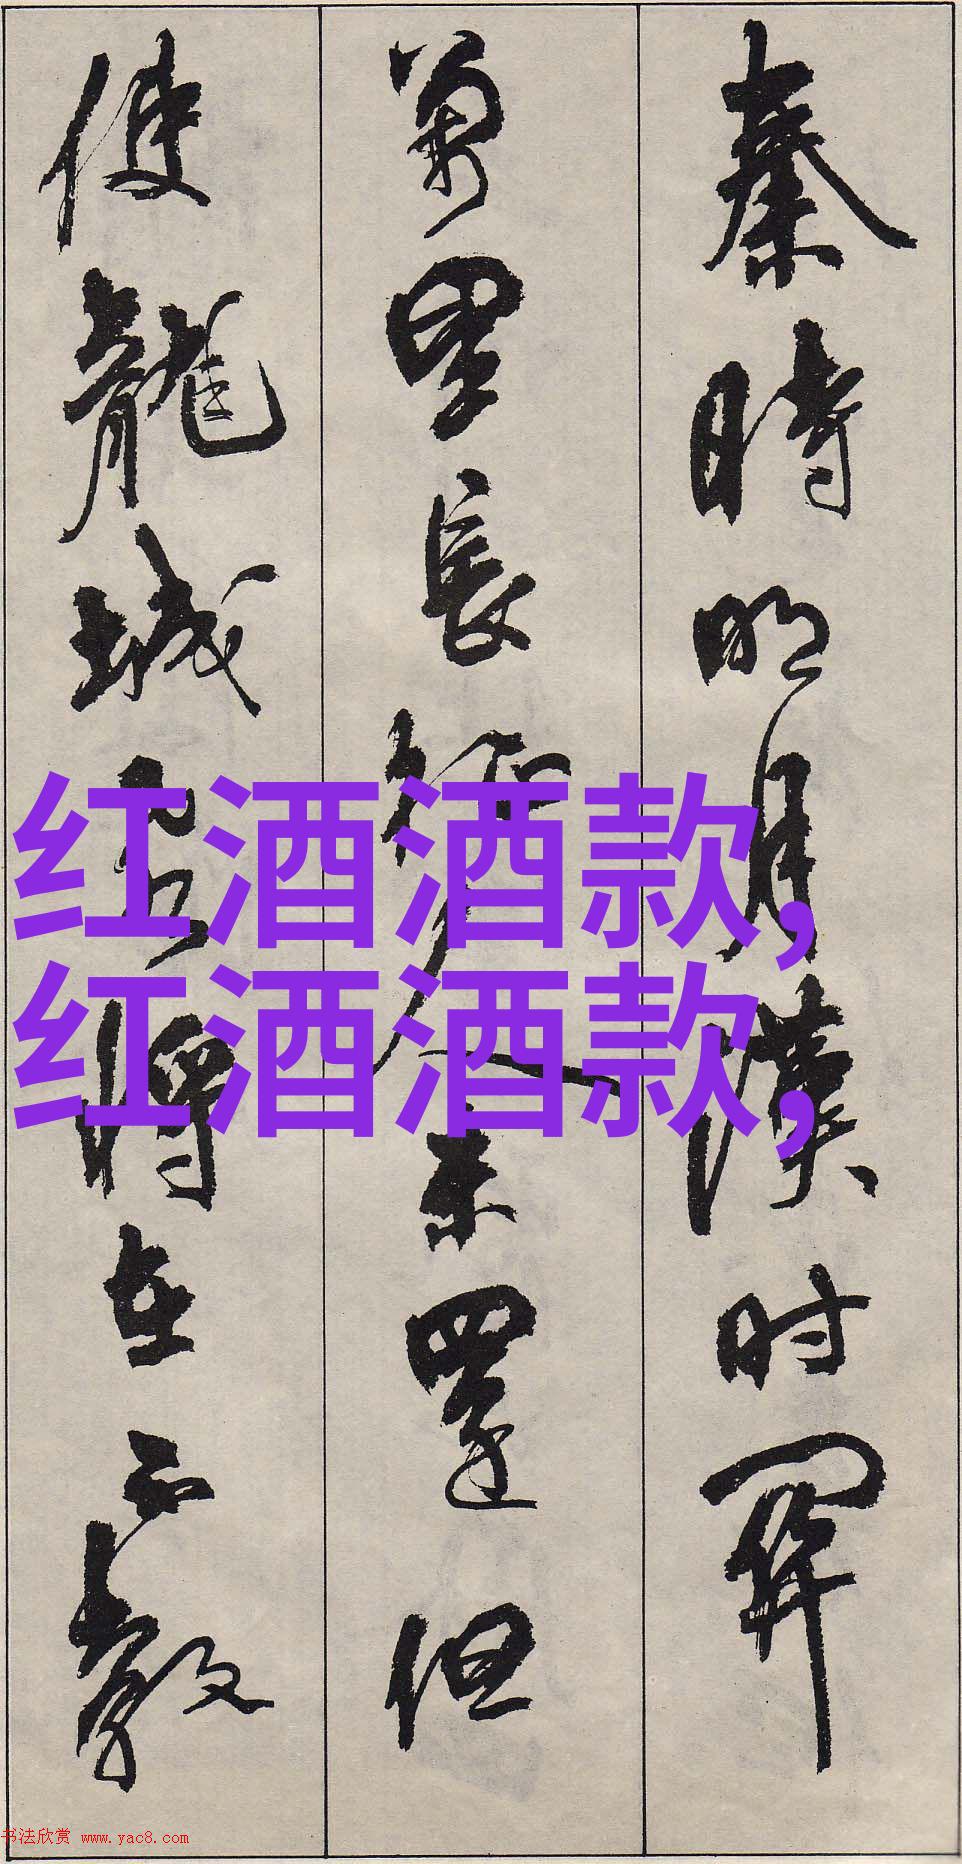 秦時明月漢时関
萬里長征人未還但
使龍城飛將在不教
红酒酒款,
红酒酒款,
书法欣赏 www.yac8.com